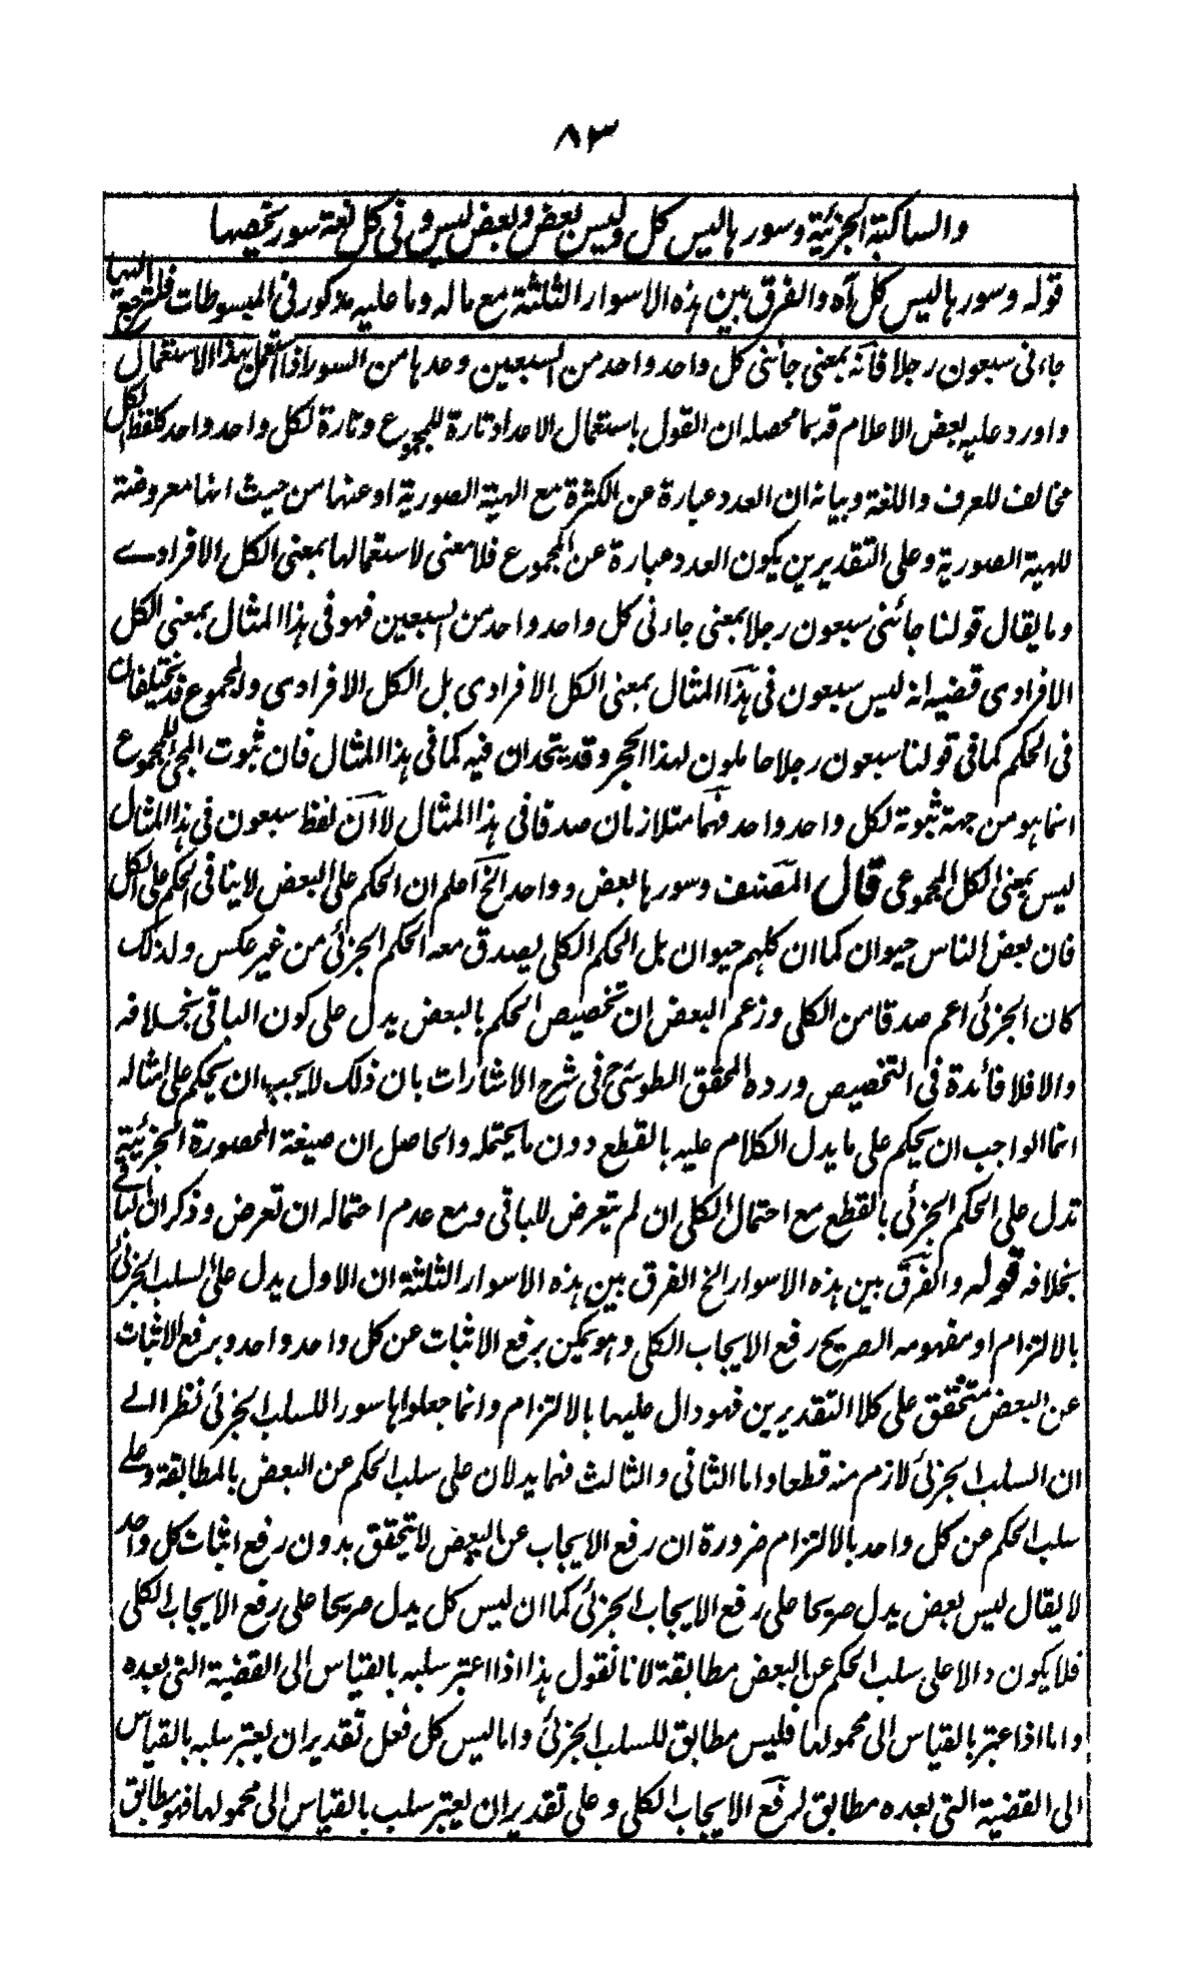 ٨٣
والسالبة الجزئية وسورها ليس كل وليس بعض وبعض ليس وفي كل لغة سور يخصها
قوله وسورها ليس كل آه والفرق بين هذه الاسوار الثلثة مع ماله وما عليه مذكور في المبسوطات فلترجع اليها
جاءني سبعون رجلا فانه بمعنى جائني كل واحد واحد من السبعين وعدها من السور اذا استعمل بهذا الاستعمال
واورد عليه بعض الاعلام قد بما محصله ان القول باستعمال الاعداد تارة للمجموع وتارة لكل واحد واحد كلفظ الكل
مخالف للعرف واللغة وبيانه ان العدد عبارة عن الكثرة مع الهيئة الصورية او عنها من حيث انها معروضة
للهيئة الصورية وعلى التقديرين يكون العدد عبارة عن المجموع فلا معنى لاستعمالها بمعنى الكل الافرادے
وما يقال قولنا جائني سبعون رجلا بمعنى جاءني كل واحد واحد من السبعين فهو في هذا المثال بمعنى الكل
الافرادي ففيه انه ليس سبعون في هذا المثال بمعنى الكل الافرادي بل الكل الافرادي والمجموع قد يختلفان
في الحكم كما في قولنا سبعون رجلا حاملون لهذا الحجر وقد يتحدان فيه كما في هذا المثال فان ثبوت المجئ للمجموع
انما هو من جهة ثبوته لكل واحد واحد فهما متلازمان صدقا في هذا المثال لا ان لفظ سبعون في هذا المثال
ليس بمعنى الكل المجموعي قال المصنف وسورها بعض وواحد الخ اعلم ان الحكم على البعض لا ينافي الحكم على الكل
فان بعض الناس حيوان كما ان كلهم حيوان بل الحكم الكلي يصدق معه الحكم الجزئي من غير عكس ولذلك
كان الجزئي اعم صدقا من الكلي وزعم البعض ان تخصيص الحكم بالبعض يدل على كون الباقي بخلافه
والا فلا فائدة في التخصيص ورده المحقق الطوسي في شرح الاشارات بان ذلك لا يجب ان يحكم على امثاله
انما الواجب ان يحكم على ما يدل الكلام عليه بالقطع دون ما يحتمله والحاصل ان صيغة المحصورة الجزئية
تدل على الحكم الجزئي بالقطع مع احتمال الكلي ان لم يتعرض للباقي ومع عدم احتماله ان تعرض وذكر ان الباقے
بخلافه قوله والفرق بين هذه الاسوار الخ الفرق بين هذه الاسوار الثلثة ان الاول يدل على السلب الجزئي
بالالتزام او مفهومه الصريح رفع الايجاب الكلي وهو يمكن برفع الاثبات عن كل واحد واحد وبرفع الاثبات
عن البعض متحقق على كلا التقديرين فهو دال عليها بالالتزام وانما جعلوها سورا للسلب الجزئي نظرا الے
ان السلب الجزئي لازم منه قطعا واما الثاني والثالث فهما يدلان على سلب الحكم عن البعض بالمطابقة وعلے
سلب الحكم عن كل واحد بالالتزام ضرورة ان رفع الايجاب عن البعض لا يتحقق بدون رفع اثبات كل واحد
لا يقال ليس بعض يدل صريحا على رفع الايجاب الجزئي كما ان ليس كل يدل صريحا على رفع الايجاب الكلي
فلا يكون دالا على سلب الحكم عن البعض مطابقة لانا نقول هذا اذا اعتبر سلبه بالقياس الى القضية التي بعده
واما اذا اعتبر بالقياس الى محمولها فليس مطابق للسلب الجزئي واما ليس كل فعلى تقدير ان يعتبر سلبه بالقياس
الى القضية التي بعده مطابق لرفع الايجاب الكلي وعلى تقدير ان يعتبر سلب بالقياس الى محمولها فهو مطابق